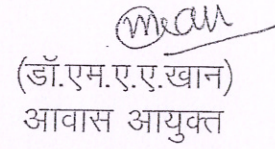 (डॉ.एम.ए.ए.खान)
आवास आयुक्त